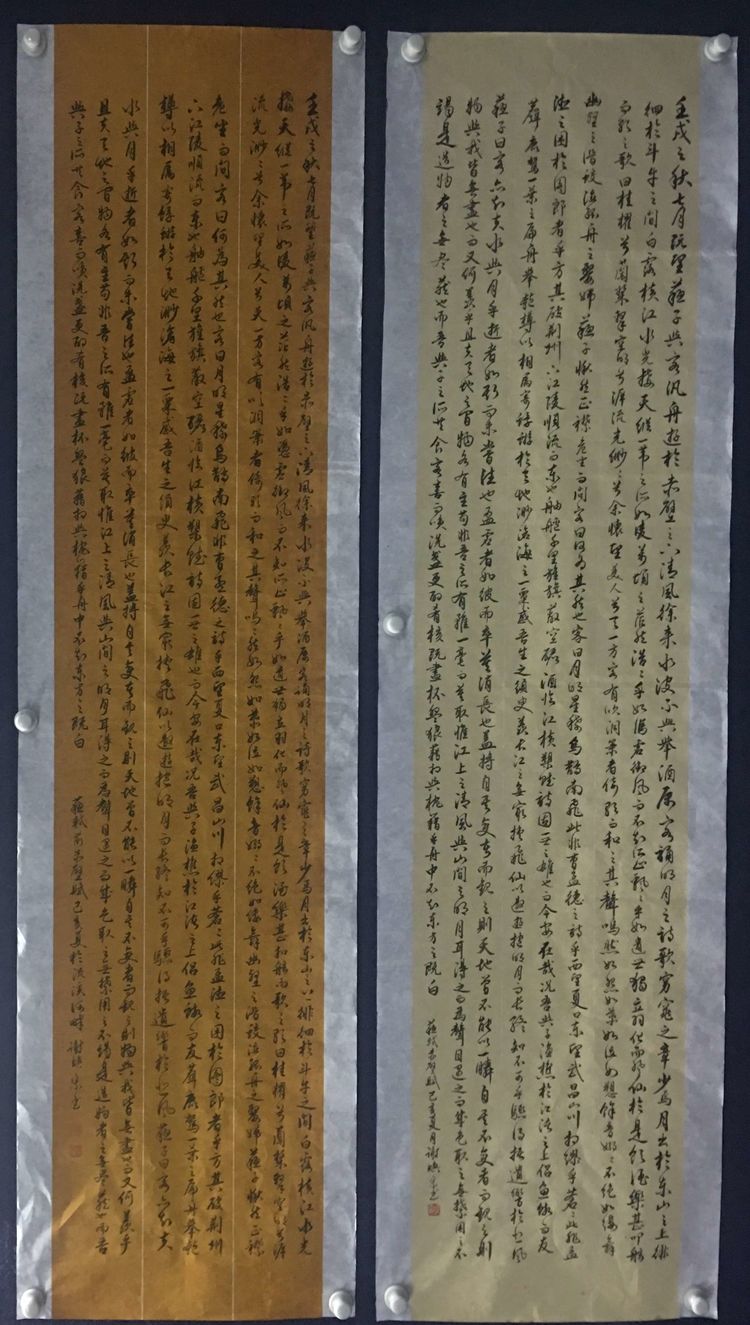 壬戌之秋七月既望蘇子與客汎舟遊於赤壁之下清風徐來水波不興舉酒屬客誦明月之詩歌窈窕之章少焉月出於東山之上徘
徊於斗牛之間白露橫江水光接天縱一葦之所如凌萬頃之茫然浩浩乎如馮虛御風而不知所止飄飄乎如遺世獨立羽化而登仙於是飲酒樂甚叩舷
而歌之歌曰桂櫂兮蘭槳擊空明兮泝流光渺渺兮余懷望美人兮天一方客有吹洞簫者倚歌而和之其聲嗚然如怨如慕如泣如愬餘音嫋嫋不絕如縷舞
幽壑之潛蛟泣孤舟之嫠婦蘇子愀然正襟危坐而問客曰何為其然也客曰月明星稀烏鵲南飛此非曹孟德之詩乎西望夏口東望武昌山川相繆乎蒼此非孟
德之困於周郎者乎方其破荊州下江陵順流而東也舳艫千里旌旗蔽空釃酒臨江橫槊賦詩固一世之雄也而今安在哉況吾與子漁樵於江渚之上侶魚蝦而友
麋鹿駕一葉之扁舟舉匏樽以相屬寄蜉蝣於天地渺滄海之一粟哀吾生之須臾羨長江之無窮挾飛仙以遨遊抱明月而長終知不可乎驟得託遺響於悲風
蘇子曰客亦知夫水與月乎逝者如斯而未嘗往也盈虛者如彼而卒莫消長也蓋將自其變者而觀之則天地曾不能以一瞬自其不變者而觀之則
物與我皆無盡也而又何羨乎且夫天地之間物各有主苟非吾之所有雖一毫而莫取惟江上之清風與山間之明月耳得之而為聲目遇之而成色取之無禁用之不
竭是造物者之無盡藏也而吾與子之所共食客喜而笑洗盞更酌肴核既盡杯盤狼藉相與枕藉乎舟中不知東方之既白
蘇軾赤壁賦己亥夏月謝
壬戌之秋七月既望蘇子與客汎舟遊於赤壁之下清風徐來水波不興舉酒屬客誦明月之詩歌窈窕之章少焉月出於東山之上徘徊於斗牛之間白露橫江水光
接天縱一葦之所如凌萬頃之茫然浩浩乎如馮虛御風而不知所止飄飄乎如遺世獨立羽化而登仙於是飲酒樂甚扣舷而歌之歌曰桂櫂兮蘭槳擊空明兮泝
流光渺渺兮余懷望美人兮天一方客有吹洞簫者倚歌而和之其聲嗚嗚然如怨如慕如泣如愬餘音嫋嫋不絕如縷舞幽壑之潛蛟泣孤舟之嫠婦蘇子愀然正襟
危坐而問客曰何為其然也客曰月明星稀烏鵲南飛非曹孟德之詩乎西望夏口東望武昌山川相繆乎蒼蒼此非孟德之困於周郎者乎方其破荊州
下江陵順流而東也舳艫千里旌旗蔽空釃酒臨江橫槊賦詩固一世之雄也而今安在哉況吾與子漁樵於江渚之上侶魚蝦而友麋鹿駕一葉之扁舟舉匏
樽以相屬寄蜉蝣於天地渺滄海之一粟哀吾生之須臾羨長江之無窮挾飛仙以遨遊抱明月而長終知不可乎驟得託遺響於悲風蘇子曰客亦知夫
水與月乎逝者如斯而未嘗往也盈虛者如彼而卒莫消長也蓋將自其變者而觀之則天地曾不能以一瞬自其不變者而觀之則物與我皆無盡也而又何羨乎
且夫天地之間物各有主苟非吾之所有雖一毫而莫取惟江上之清風與山間之明月耳得之而為聲目遇之而成色取之無禁用之不竭是造物者之無盡藏也而吾
與子之所共食客喜而笑洗盞更酌肴核既盡杯盤狼藉相與枕藉乎舟中不知東方之既白
蘇軾前赤壁賦己亥夏於流溪河畔謝